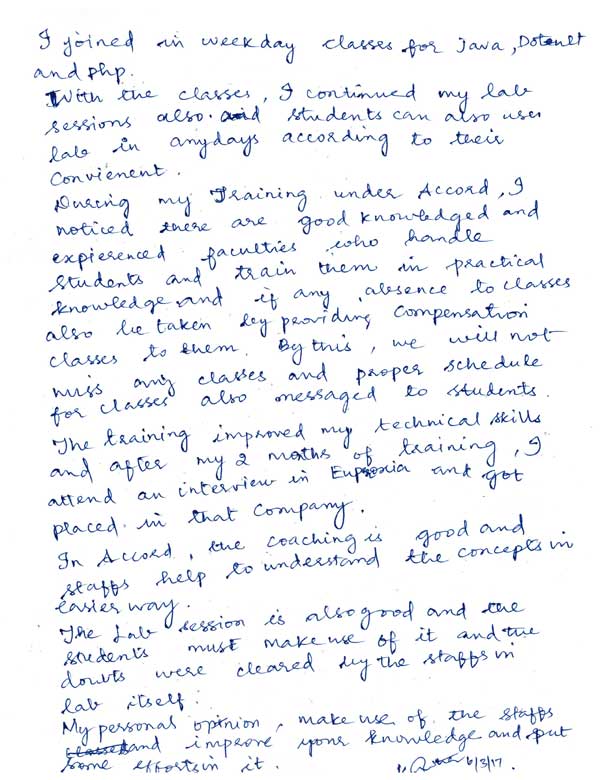 I joined in weekday classes for Java, Dotnet
and php.
With the classes, I continued my lab
sessions also. and students can also use
lab in anydays according to their
convienent.
During my Training under Accord, I
noticed there are good knowledged and
expierenced faculties who handle
students and train them in practical
knowledge and if any absence to classes
also be taken by providing compensation
classes to them. By this, we will not
miss any classes and proper schedule
for classes also messaged to students.
The training improved my technical skills
and after my 2 moths of training, I
attend an interview in and got
placed in that Company.
In Accord, the coaching is good and
staffs help to understand the concepts in
easier way.
The Lab session is also good and the
students must make use of it and the
doubts were cleared by the staffs in
lab itself.
My personal opinion, make use of the staffs
and improve your knowledge and put
some efforts in it. 6/3/17.